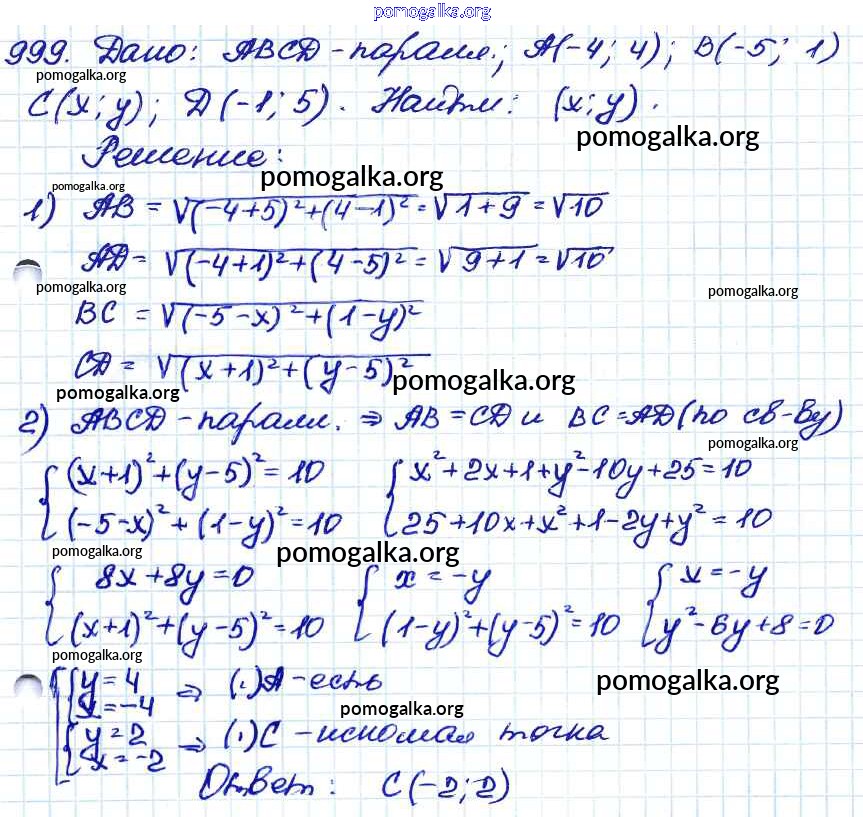 pomogalka.org
999. Дано: ABCD - паралл.; A(-4; 4); B(-5; 1)
pomogalka.org
C(x; y); D(-1; 5). Найти: (x; y).
pomogalka.org
Решение:
pomogalka.org
pomogalka.org
1) AB = √(-4+5)²+(4-1)² = √1+9 = √10
AD = √(-4+1)²+(4-5)² = √9+1 = √10
pomogalka.org
pomogalka.org
BC = √(-5-x)²+(1-y)²
CD = √(x+1)²+(y-5)²
pomogalka.org
pomogalka.org
2) ABCD - паралл. ⇒ AB = CD и BC = AD (по св-ву)
pomogalka.org
{ (x+1)²+(y-5)² = 10 { x²+2x+1+y²-10y+25 = 10
(-5-x)²+(1-y)² = 10 25+10x+x²+1-2y+y² = 10
pomogalka.org
pomogalka.org
{ 8x+8y = 0 { x = -y { x = -y
(x+1)²+(y-5)² = 10 (1-y)²+(y-5)² = 10 y²-6y+8 = 0
pomogalka.org
[ { y = 4
x = -4 ⇒ (.) A - есть
pomogalka.org
pomogalka.org
{ y = 2
x = -2 ⇒ (.) C - искомая точка
Ответ: C(-2; 2)